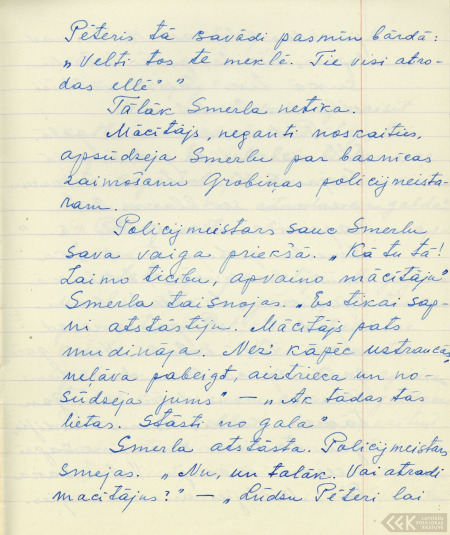 Pēteris tā savādi pasmīn bārdā:
„Velti tos te meklē. Tie visi atro-
das ellē"
Tālāk Smerla netika.
Mācītājs, neganti noskaities,
apsūdzēja Smerlu par basnīcas
zaimošanu Grobiņas policijmeista-
ram.
Policijmeistars sauc Smerlu
sava vaiga priekšā. „Kā tu tā!
Zaimo ticību, apvaino mācītāju"
Smerla taisnojas. „Es tikai sap-
ni atstāstīju. Mācītājs pats
mudināja. Nez kāpēc uztraucās,
neļāva pabeigt, aiztrieca un no-
sūdzēja jums" — „Ak tādas tās
lietas. Stāsti no gala"
Smerla atstāsta. Policijmeistars
smejas. „Nu, un tālāk. Vai atradi
mācītājus?" — „Lūdzu Pēteri lai
LATVIEŠU
FOLKLORAS
KRĀTUVE